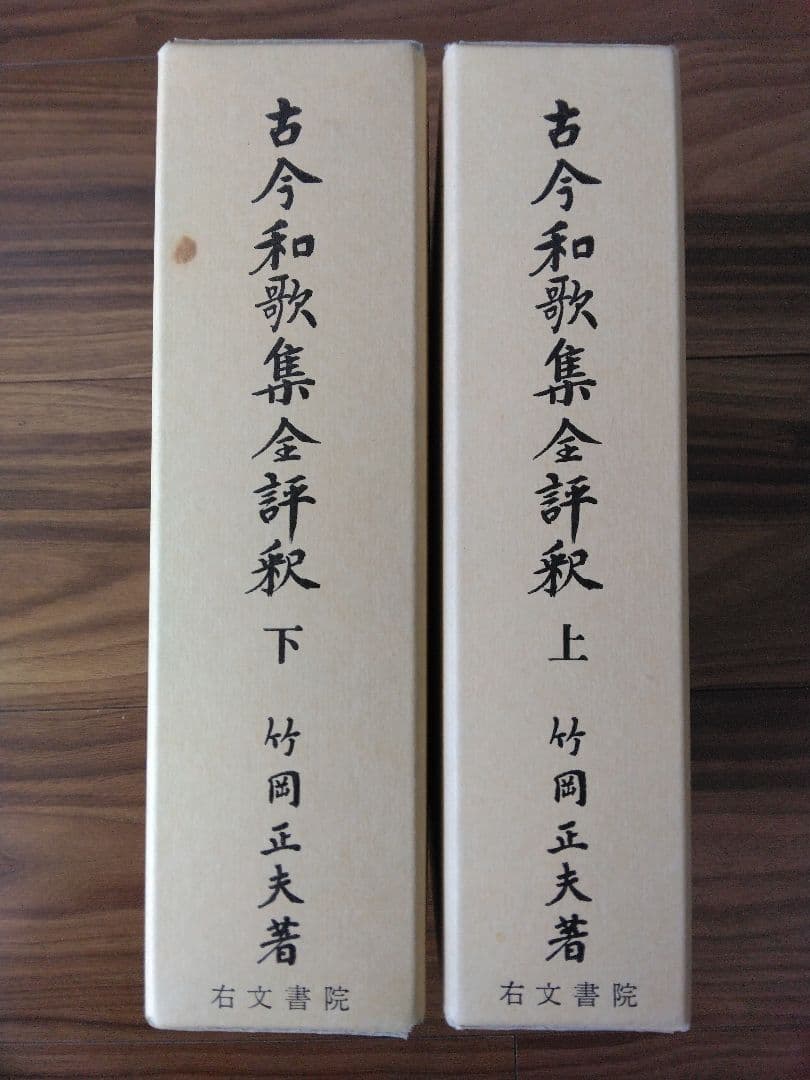 古今和歌集全評釈 上 竹岡正夫著
右文書院
古今和歌集全評釈 下 竹岡正夫著
右文書院